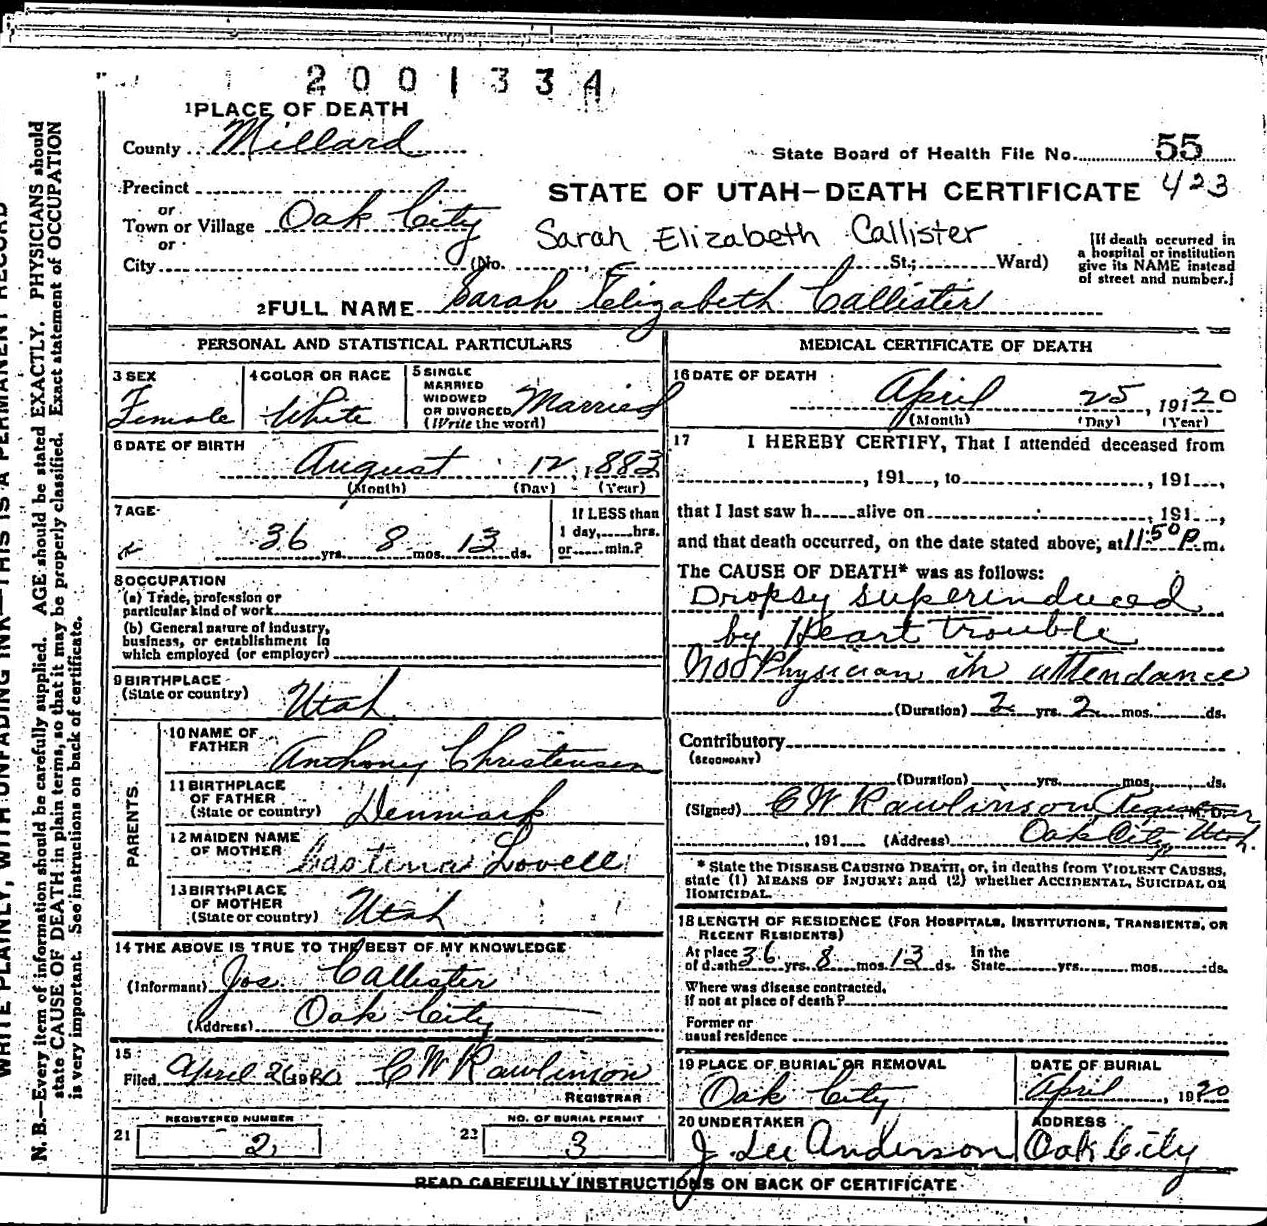 2001334
1 PLACE OF DEATH
County Millard
State Board of Health File No. 55
423
Precinct
or
STATE OF UTAH—DEATH CERTIFICATE
Town or Village Oak City
or
Sarah Elizabeth Callister
City (No. , St.; Ward)
[If death occurred in
a hospital or institution
give its NAME instead
of street and number.]
2 FULL NAME Sarah Elizabeth Callister
PERSONAL AND STATISTICAL PARTICULARS
3 SEX
Female
4 COLOR OR RACE
White
5 SINGLE
MARRIED
WIDOWED
OR DIVORCED
(Write the word)
Married
6 DATE OF BIRTH
August 12, 1883
(Month) (Day) (Year)
7 AGE
36 yrs. 8 mos. 13 ds.
If LESS than
1 day, hrs.
or min.?
8 OCCUPATION
(a) Trade, profession or
particular kind of work
(b) General nature of industry,
business, or establishment in
which employed (or employer)
9 BIRTHPLACE
(State or country) Utah
PARENTS.
10 NAME OF
FATHER Anthony Christensen
11 BIRTHPLACE
OF FATHER
(State or country) Denmark
12 MAIDEN NAME
OF MOTHER Lovell
13 BIRTHPLACE
OF MOTHER
(State or country) Utah
14 THE ABOVE IS TRUE TO THE BEST OF MY KNOWLEDGE
(Informant) Jos Callister
(Address) Oak City
15
Filed April 26 1920 C W Rawlinson
REGISTRAR
REGISTERED NUMBER
21 2
NO. OF BURIAL PERMIT
22 3
MEDICAL CERTIFICATE OF DEATH
16 DATE OF DEATH
April 25, 19120
(Month) (Day) (Year)
17 I HEREBY CERTIFY, That I attended deceased from
, 191 , to , 191 ,
that I last saw h alive on , 191 ,
and that death occurred, on the date stated above, at 11:50 P.m.
The CAUSE OF DEATH* was as follows:
Dropsy superinduced
by Heart trouble
No Physician in attendance
(Duration) 2 yrs. 2 mos. ds.
Contributory
(SECONDARY)
(Duration) yrs. mos. ds.
(Signed) C W Rawlinson Registrar M. D.
, 191 (Address) Oak City, Utah.
* State the DISEASE CAUSING DEATH, or, in deaths from VIOLENT CAUSES,
state (1) MEANS OF INJURY; and (2) whether ACCIDENTAL, SUICIDAL OR
HOMICIDAL.
18 LENGTH OF RESIDENCE (FOR HOSPITALS, INSTITUTIONS, TRANSIENTS, OR
RECENT RESIDENTS)
At place
of death 36 yrs. 8 mos. 13 ds. In the
State yrs. mos. ds.
Where was disease contracted,
if not at place of death?
Former or
usual residence
19 PLACE OF BURIAL OR REMOVAL
Oak City
DATE OF BURIAL
April , 1920
20 UNDERTAKER
J. Lee Anderson
ADDRESS
Oak City
READ CAREFULLY INSTRUCTIONS ON BACK OF CERTIFICATE
WRITE PLAINLY, WITH UNFADING INK—THIS IS A PERMANENT RECORD
N. B.—Every item of information should be carefully supplied. AGE should be stated EXACTLY. PHYSICIANS should
state CAUSE OF DEATH in plain terms, so that it may be properly classified. Exact statement of OCCUPATION
is very important. See instructions on back of certificate.